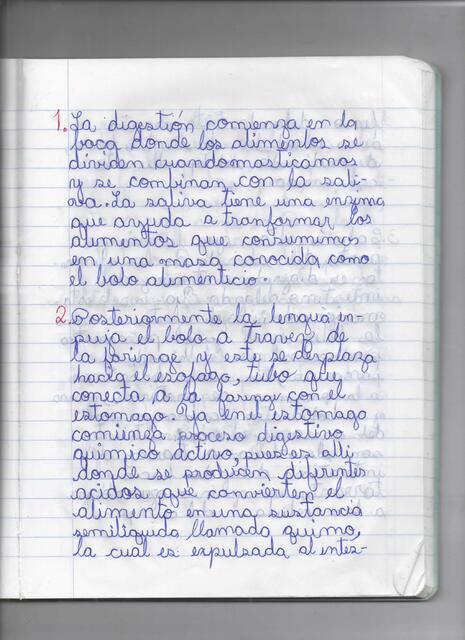 1. La digestión comienza en la
boca donde los alimentos se
dividen cuando masticamos
y se combinan con la sali-
va. La saliva tiene una enzima
que ayuda a tranformar los
alimentos que consumimos
en una masa conocida como
el bolo alimenticio.
2. Posteriormente la lengua em-
puja el bolo a travez de
la faringe y este se desplaza
hacia el esofago, tubo que
conecta a la faringe con el
estomago. Ya en el estomago
comienza proceso digestivo
químico activo, pues es alli
donde se producen diferentes
acidos que convierten el
alimento en una sustancia
semiliquida llamada quimo,
la cual es expulsada al intes-